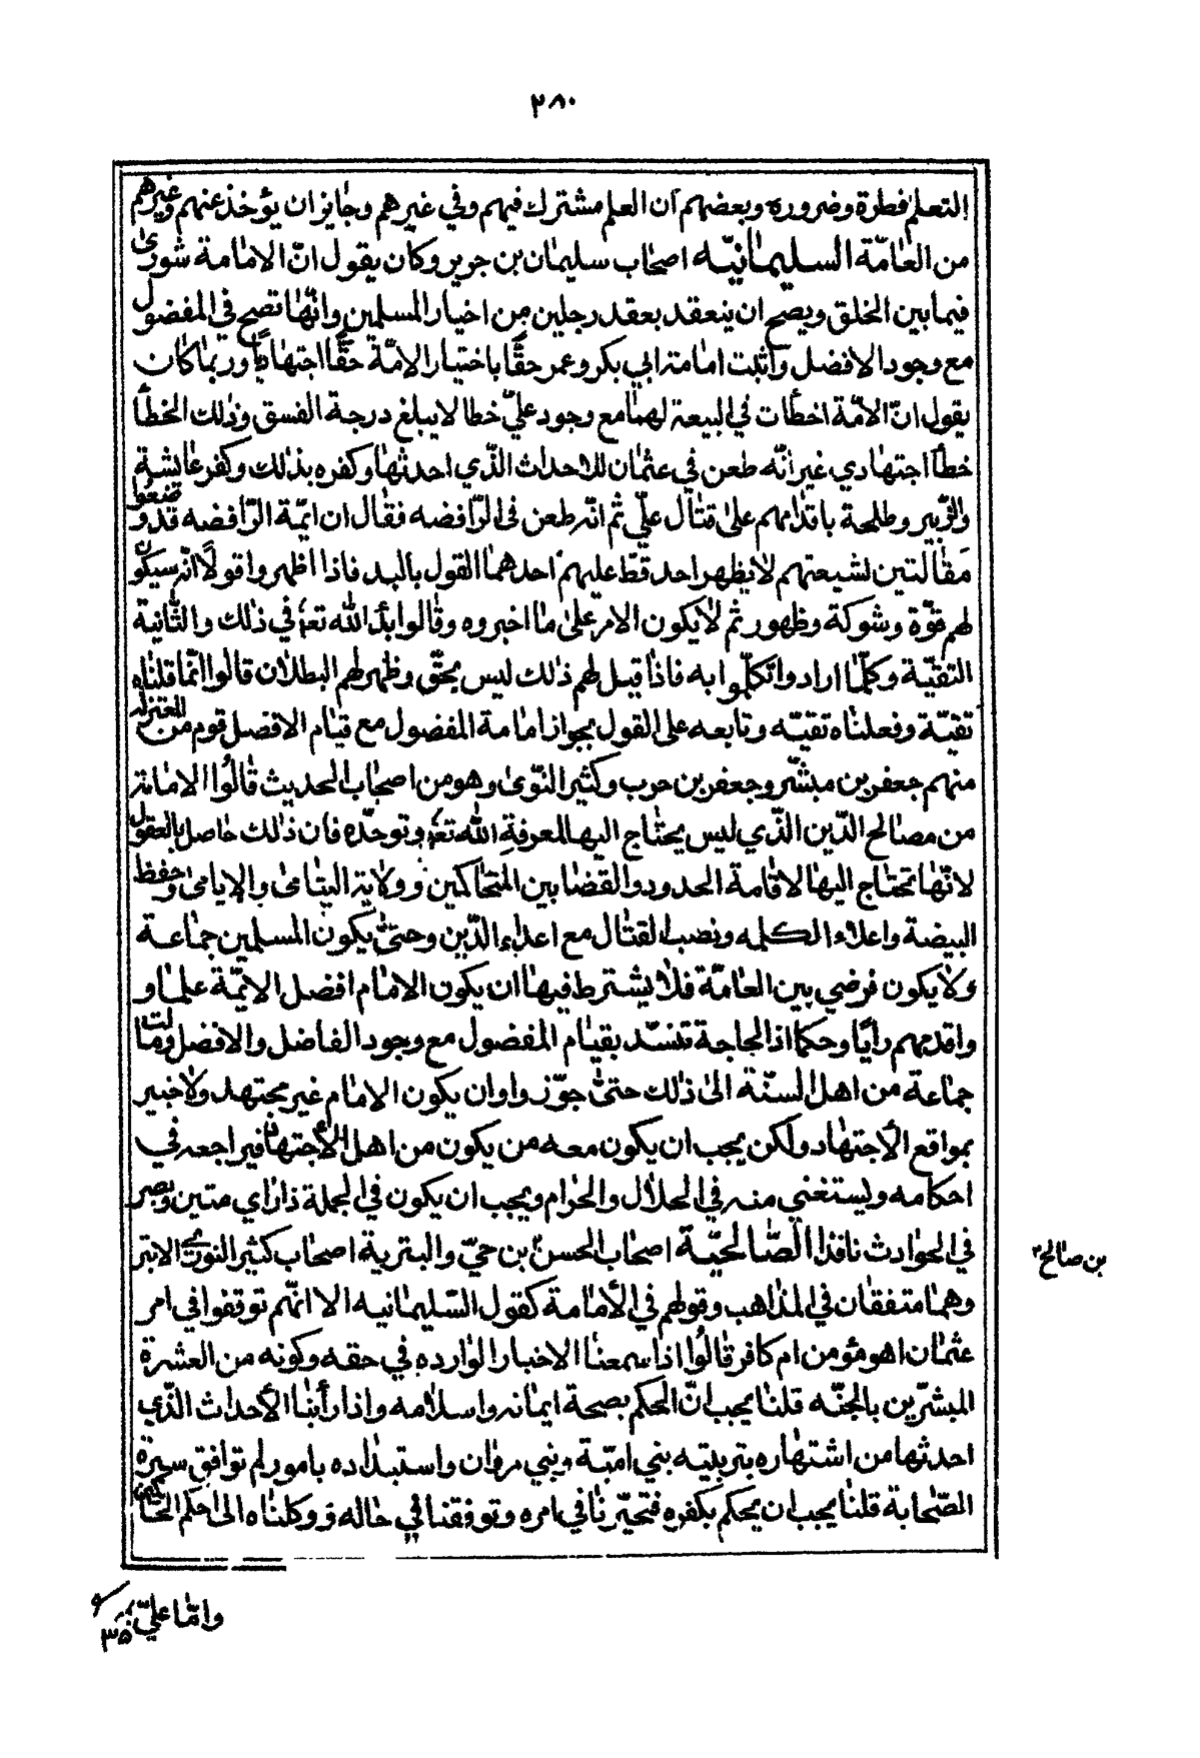 ٢٨٠
التعلم فطرة وضروره وبعضهم ان العلم مشترك فيهم وفي غيرهم وجايز ان يؤخذ عنهم وغيرهم
من العامّة السليمانيّه اصحاب سليمان بن جرير وكان يقول انّ الامامة شورى
فيما بين الخلق ويصح ان ينعقد بعقد رجلين من اخيار المسلمين وانّها تصح في المفضول
مع وجود الافضل واثبت امامة ابي بكر وعمر حقًّا باختيار الامّة حقًّا اجتهاديًا وربما كان
يقول انّ الامّة اخطأت في البيعة لهما مع وجود عليّ خطا لا يبلغ درجة الفسق وذلك الخطأ
خطأ اجتهادي غير انّه طعن في عثمان للاحداث الّذي احدثها وكفره بذلك وكفر عايشة
والزّبير وطلحة باقدامهم على قتال عليّ ثم انّه طعن في الرّافضه فقال ان ايمّة الرّافضه قد وضعوا
مقالتين لشيعتهم لا يظهر احد قطّ عليهم احدهما القول بالبد فاذا اظهروا قولًا انّه سيكون
لهم قوّة وشوكة وظهور ثم لا يكون الامر على ما اخبروه وقالوا بدأ الله تعه في ذلك والثّانية
التقيّة وكلّما ارادوا تكلّموا به فاذا قيل لهم ذلك ليس بحقّ وظهر لهم البطلان قالوا انّما قلناه
تقيّة وفعلناه تقيّه وتابعه على القول بجواز امامة المفضول مع قيام الافضل قوم من المعتزله
منهم جعفر بن مبشّر وجعفر بن حرب وكثير النّوى وهو من اصحاب الحديث قالوا الامامة
من مصالح الدّين الّذي ليس يحتاج اليها لمعرفة الله تعه وتوحّده فان ذلك حاصل بالعقول
لانّها تحتاج اليها لاقامة الحدود والقضا بين المتحاكمين وولاية اليتامى والايامى وحفظ
البيضة واعلاء الكلمه ونصب القتال مع اعداء الدّين وحتّى يكون المسلمين جماعة
ولا يكون فرضي بين العامّة فلا يشترط فيها ان يكون الامام افضل الايمّة علما و
واقدمهم رايًا وحكما اذ الحاجة تنسدّ بقيام المفضول مع وجود الفاضل والافضل ومالت
جماعة من اهل السنّة الى ذلك حتى جوّزوا وان يكون الامام غير مجتهد ولا خبير
بمواقع الاجتهاد ولكن يجب ان يكون معه من يكون من اهل الاجتهاد فيراجعه في
احكامه ويستغني منه في الحلال والحرام ويجب ان يكون في الجملة ذا راي متين وبصر
في الحوادث نافذا الصّالحيّة اصحاب الحسن بن حيّ والبترية اصحاب كثير النوى الابتر
بن صالح
وهما متفقان في المذاهب وقولهم في الأمامة كقول السّليمانيه الا انّهم توقفوا في امر
عثمان اهو مؤمن ام كافر قالوا اذا سمعنا الاخبار الوارده في حقه وكونه من العشرة
المبشّرين بالجنّه قلنا يجب انّ الحكم بصحة ايمانه واسلامه واذا رأينا الأحداث الّذي
احدثها من اشتهاره بتربيته بني اميّة وبني مروان واستبداده بامور لم توافق سيرة
الصّحابة قلنا يجب ان يحكم بكفره فتحيّرنا في امره وتوقفنا في حاله ووكلناه الى احكم الحاكمين
وامّا عليّ
٣٥